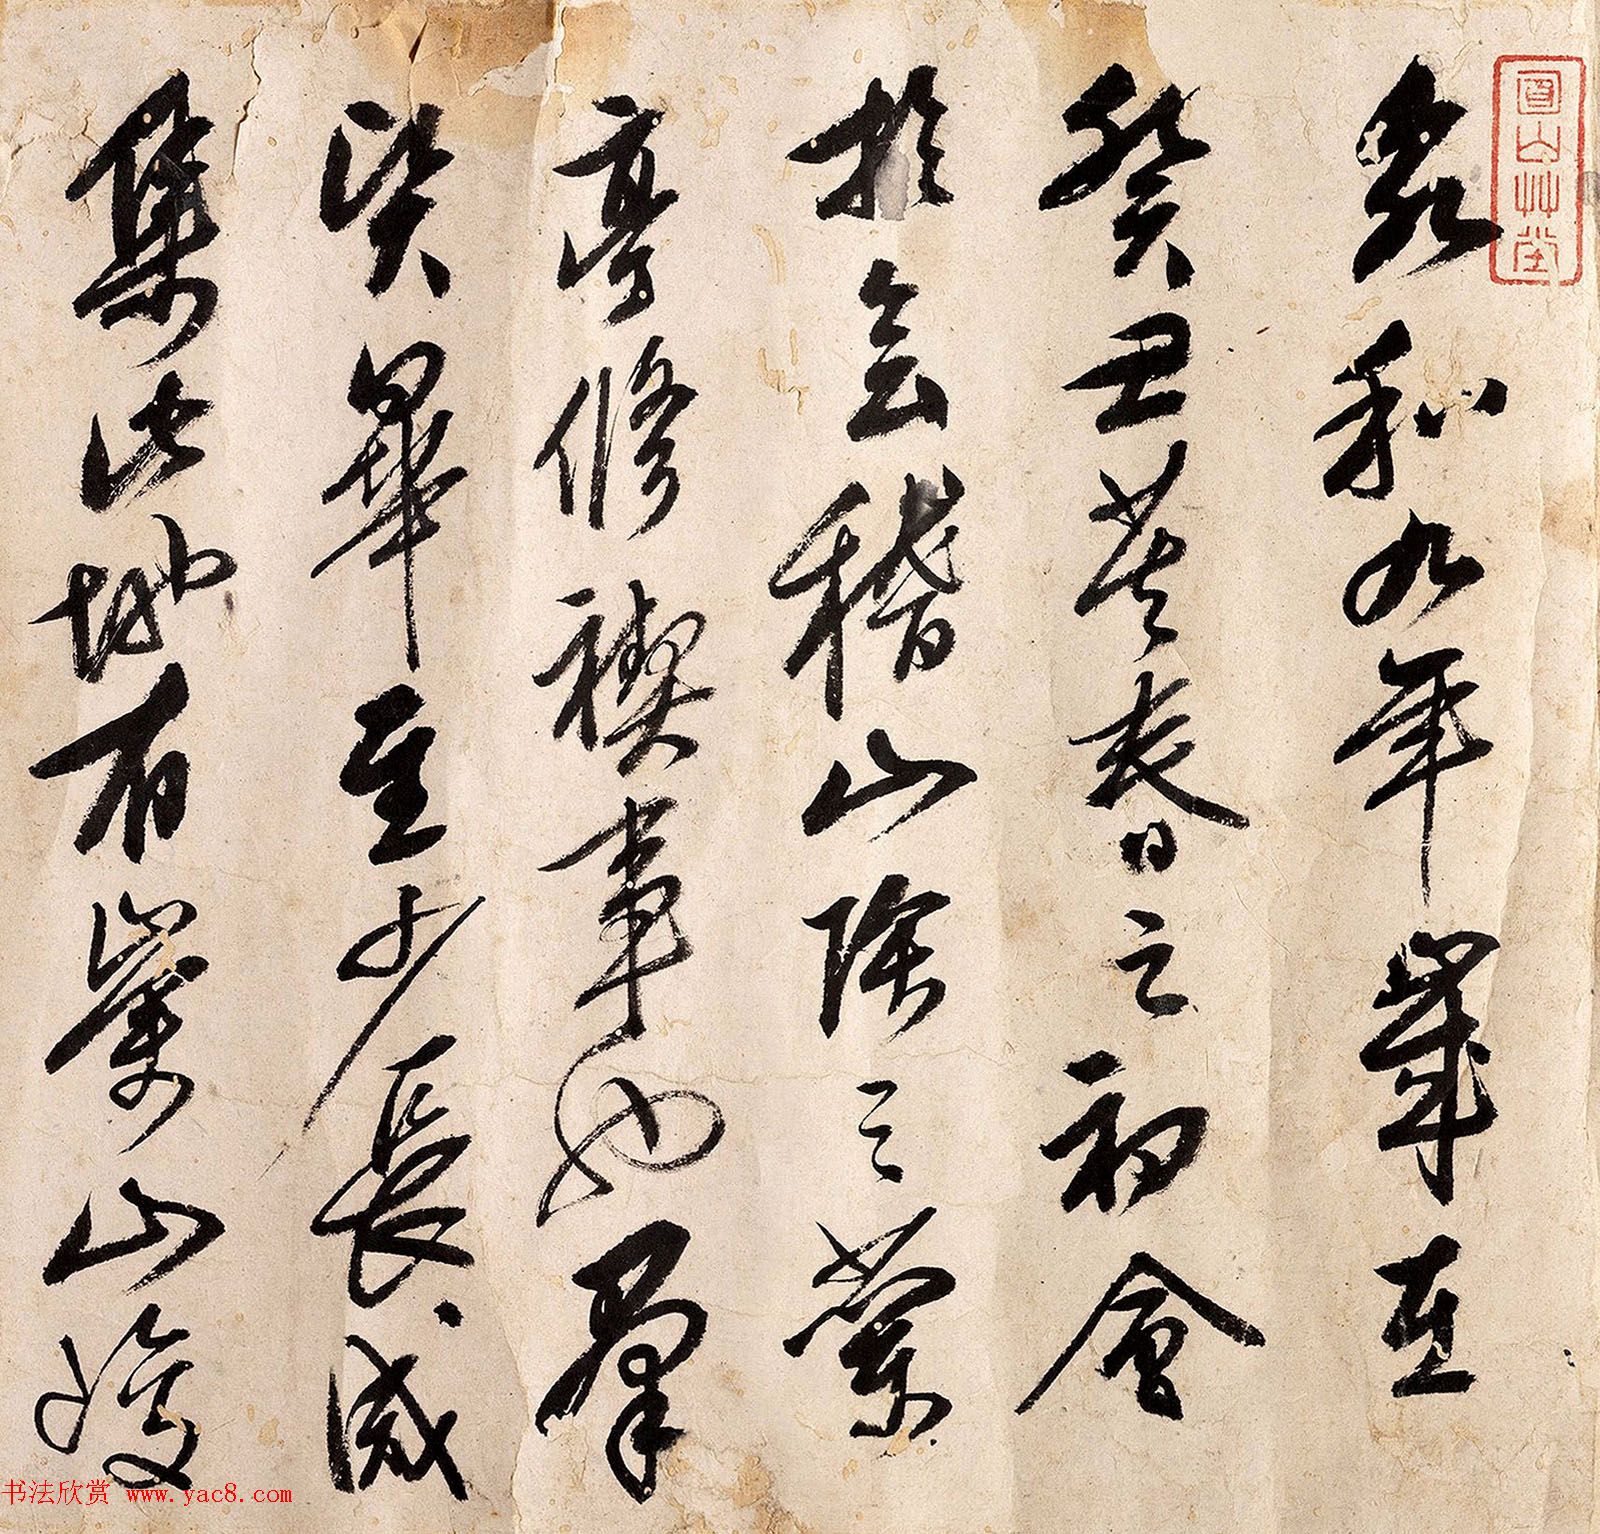 圓山艸堂
永和九年歲在
癸丑暮春之初會
於会稽山陰之蘭
亭修禊事也羣
賢畢至少長咸
集此地有崇山峻
书法欣赏 www.yac8.com